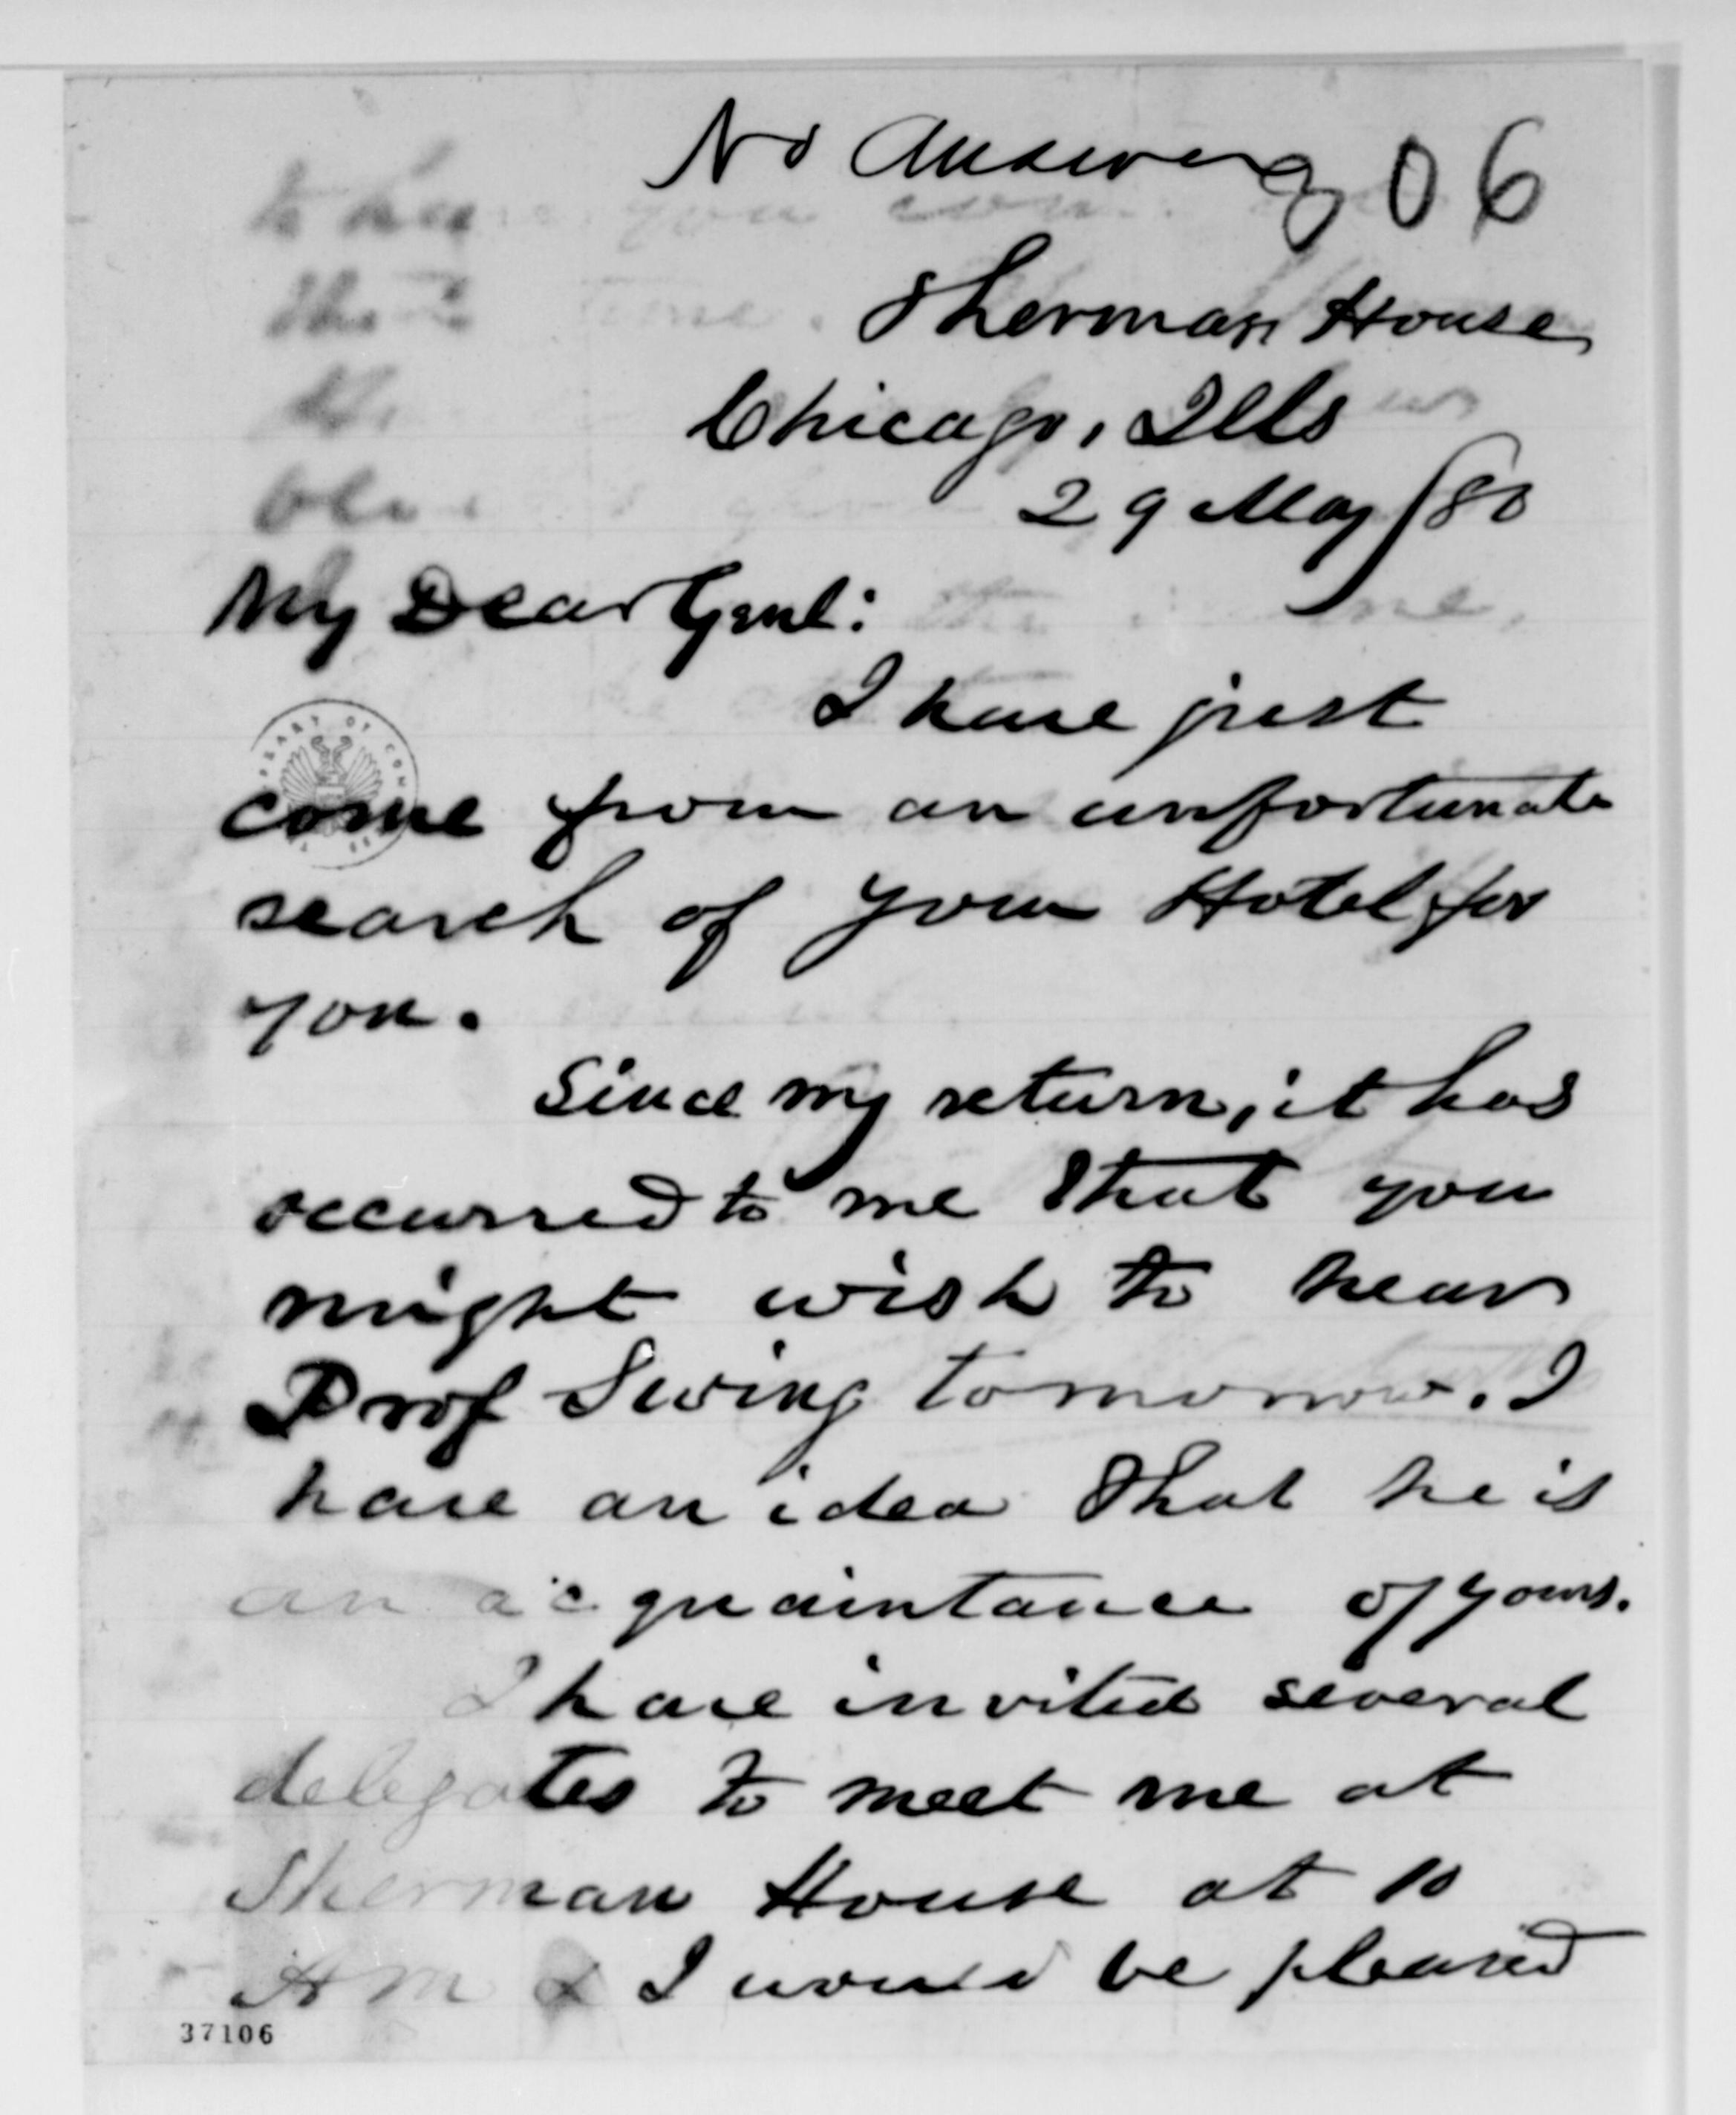 No Answer
806
Sherman House,
Chicago, Ills
29 May /80
My Dear Genl:
I have just
come from an unfortunate
search of your Hotel for
you.
Since my return, it has
occurred to me that you
might wish to hear
Prof Swing tomorrow. I
have an idea that he is
an acquaintance of yours.
I have invited several
delegates to meet me at
Sherman House at 10
AM & I would be pleased
37106